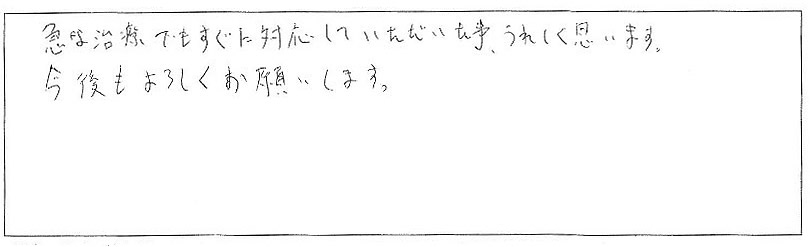 急な治療でもすぐに対応していただいた事、うれしく思います。
今後もよろしくお願いします。